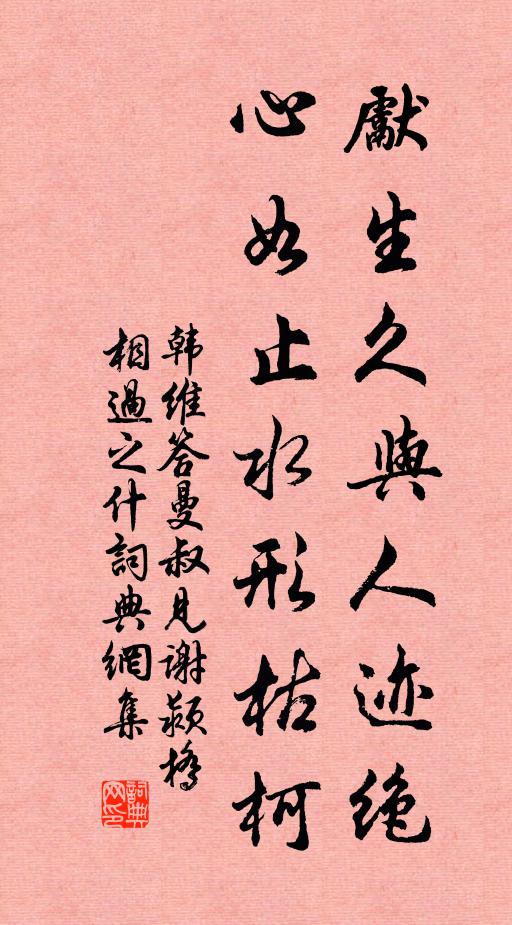 獻生久與人迹绝
心如止水形枯柯
韩维答曼叔见谢颍桥
相過之什詞典網集
詞典网印